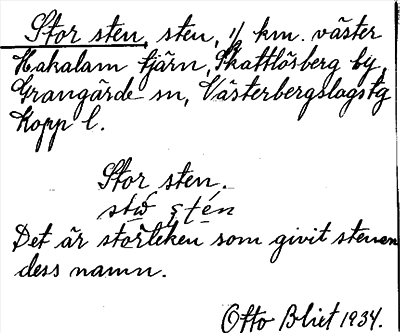 Stor sten, sten, 1/2 km. väster
Hakalam tjärn, Skattlösberg by,
Grangärde sn, Västerbergslags tg
Kopp l.
Stor sten.
Det är storleken som givit stenen
dess namn.
Otto Blixt 1934.